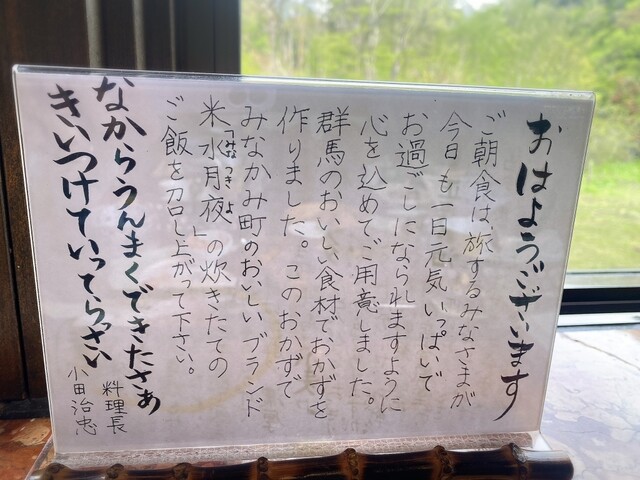 おはようございます
ご朝食は、旅するみなさまが
今日も一日元気いっぱいで
お過ごしになられますように
心を込めてご用意しました。
群馬のおいしい食材でおかずを
作りました。このおかずで
みなかみ町のおいしいブランド
米水月夜」の炊きたての
ご飯を召し上がって下さい。
なからうんまくできたさぁ
きいつけていってらっさい
料理長
小田治忠